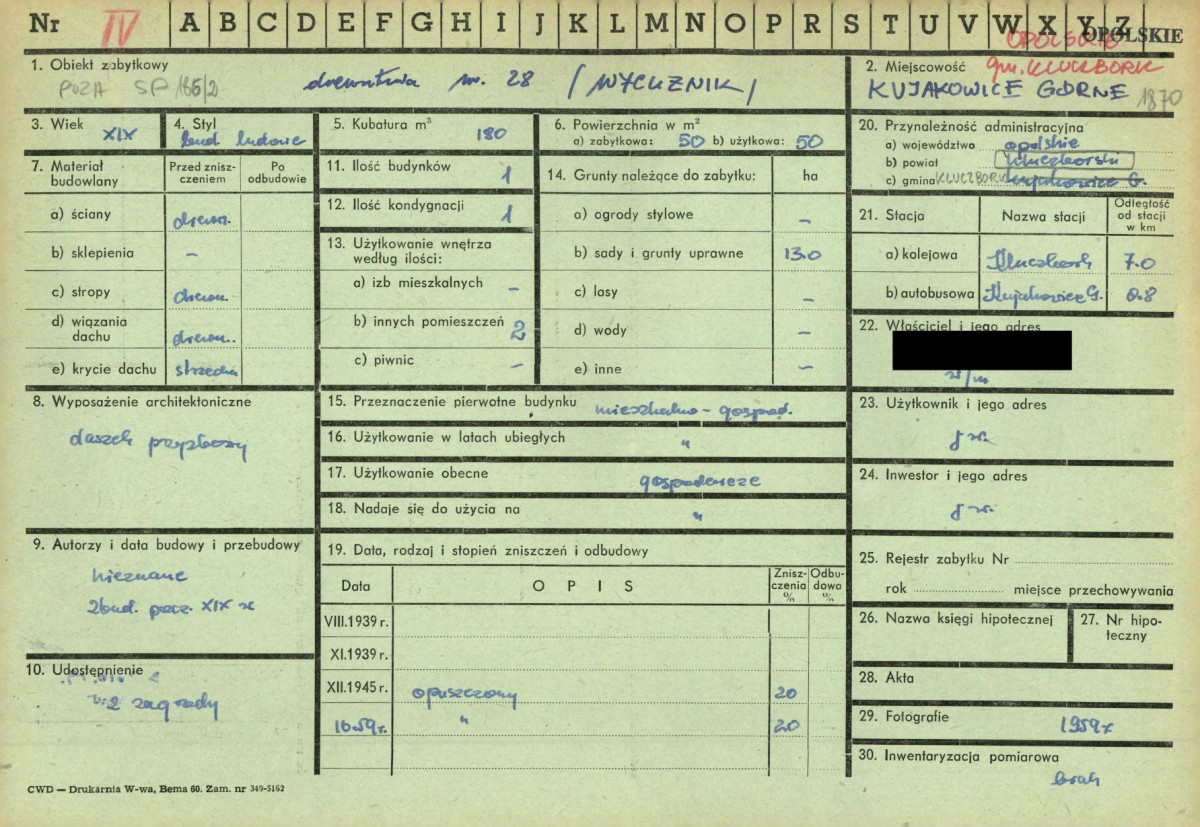 Nr IV A B C D E F G H I J K L M N O P R S T U V W X Y Z OPOLSKIE
OPOLSKIE
1. Obiekt zabytkowy
POZA SP/186/2 nr. 28 /WYCUŻNIK/
2. Miejscowość gm. KLUCZBORK
KUJAKOWICE GÓRNE 1870
3. Wiek XIX
4. Styl bud ludowe
5. Kubatura m³ 180
6. Powierzchnia w m²
a) zabytkowa: 50 b) użytkowa: 50
7. Materiał budowlany
Przed zniszczeniem
Po odbudowie
a) ściany drewn.
b) sklepienia –
c) stropy drewn.
d) wiązania dachu drewn.
e) krycie dachu strzecha
11. Ilość budynków 1
12. Ilość kondygnacji 1
13. Użytkowanie wnętrza według ilości:
a) izb mieszkalnych –
b) innych pomieszczeń 2
c) piwnic –
14. Grunty należące do zabytku: ha
a) ogrody stylowe –
b) sady i grunty uprawne 13.0
c) lasy –
d) wody –
e) inne –
20. Przynależność administracyjna
a) województwo opolskie
b) powiat kluczborski
c) gmina KLUCZBORK Kujakowice G.
21. Stacja Nazwa stacji Odległość od stacji w km
a) kolejowa Kluczbork 7.0
b) autobusowa Kujakowice G. 0.8
22. Właściciel i jego adres
w/m
23. Użytkownik i jego adres
j w.
24. Inwestor i jego adres
j w.
8. Wyposażenie architektoniczne
daszek przyzbowy
15. Przeznaczenie pierwotne budynku mieszkalno - gospod.
16. Użytkowanie w latach ubiegłych "
17. Użytkowanie obecne gospodarcze
18. Nadaje się do użycia na "
9. Autorzy i data budowy i przebudowy
nieznane
zbud. pocz. XIX w
10. Udostępnienie
z zagrody
19. Data, rodzaj i stopień zniszczeń i odbudowy
Data OPIS Zniszczenia % Odbudowa %
VIII.1939 r.
XI.1939 r.
XII.1945 r. opuszczony 20
" 20
25. Rejestr zabytku Nr
rok miejsce przechowywania
26. Nazwa księgi hipotecznej
27. Nr hipoteczny
28. Akta
29. Fotografie 1959 r
30. Inwentaryzacja pomiarowa
brak
CWD — Drukarnia W-wa, Bema 60. Zam. nr 349-5162